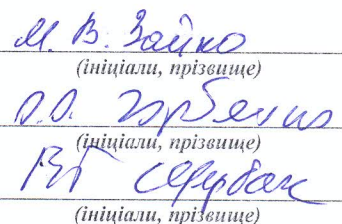 М. В. Зайко
(ініціали, прізвище)
О.О. Горбенко
(ініціали, прізвище)
ВГ Щербак
(ініціали, прізвище)